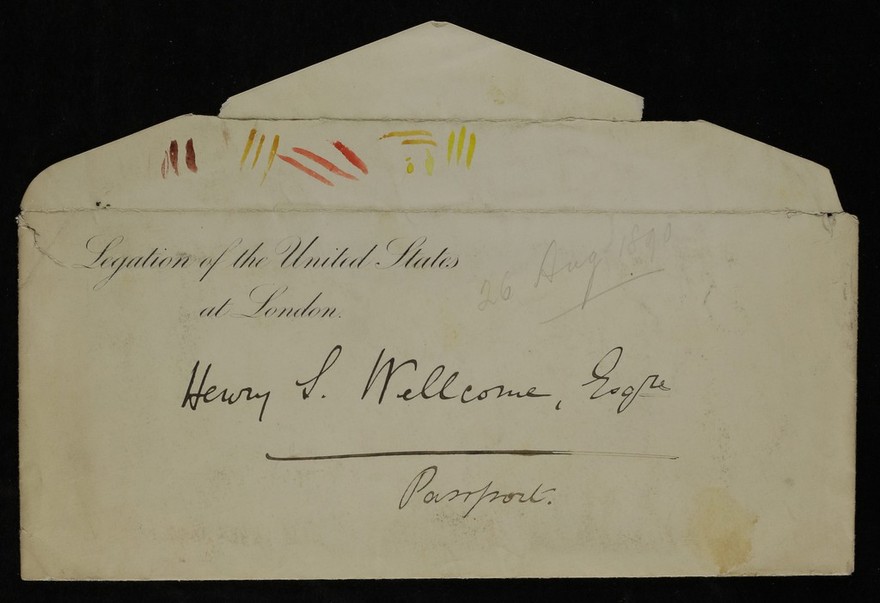 Legation of the United States
at London.
26 Aug 1890
Henry S. Wellcome, Esqre
Passport.